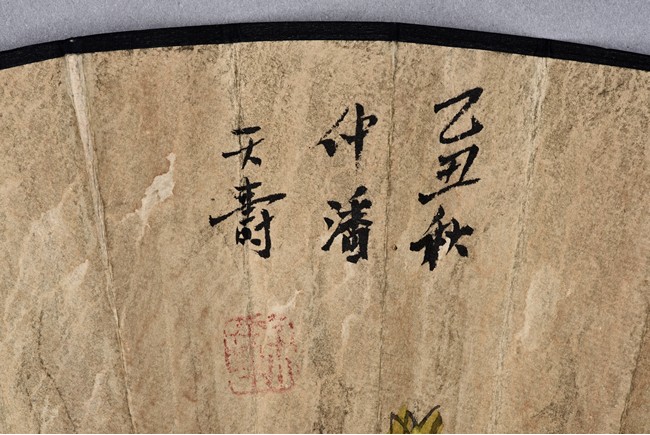 乙丑秋
仲潘
天壽